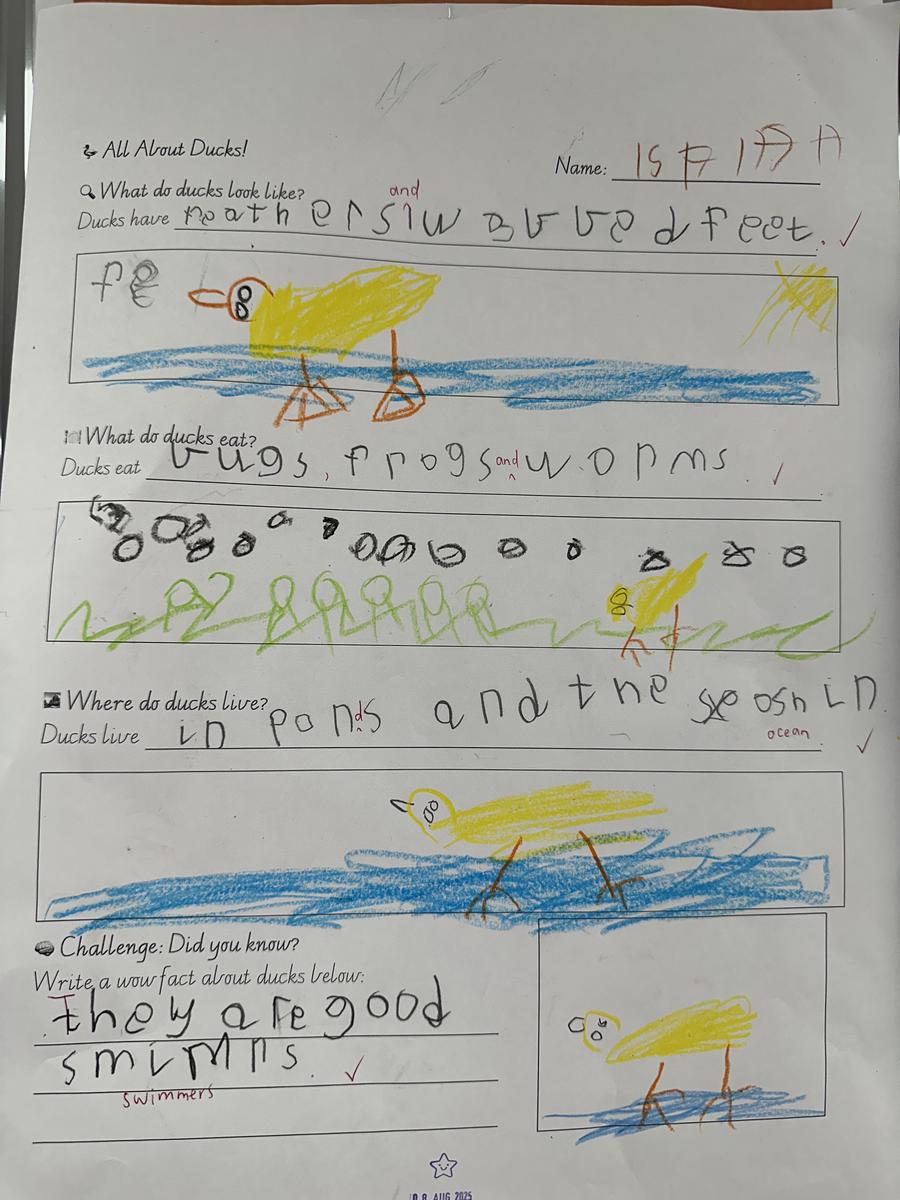 All About Ducks!
Name: ISAIAH
What do ducks look like?
and
Ducks have feathers, wabbed feet. ✓
fe
What do ducks eat?
Ducks eat bugs, frogs and worms. ✓
Where do ducks live?
Ducks live in ponds and the seoshin
ocean ✓
Challenge: Did you know?
Write a wow fact about ducks below:
They are good
smimrs. ✓
swimmers
08 AUG 2025